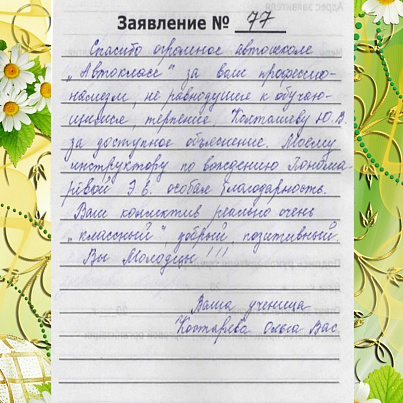 Заявление № 77
Спасибо огромное автошколе
„Автокласс" за ваш профессио-
нализм, не равнодушие к обучаю-
щимся, терпение. Колташову Ю.В.
за доступное объяснение. Моему
инструктору по вождению Понома-
рёвой Э.В. особая благодарность.
Ваш коллектив реально очень
„классный", добрый, позитивный.
Вы Молодцы !!!
Ваша ученица
Ольга Вас.